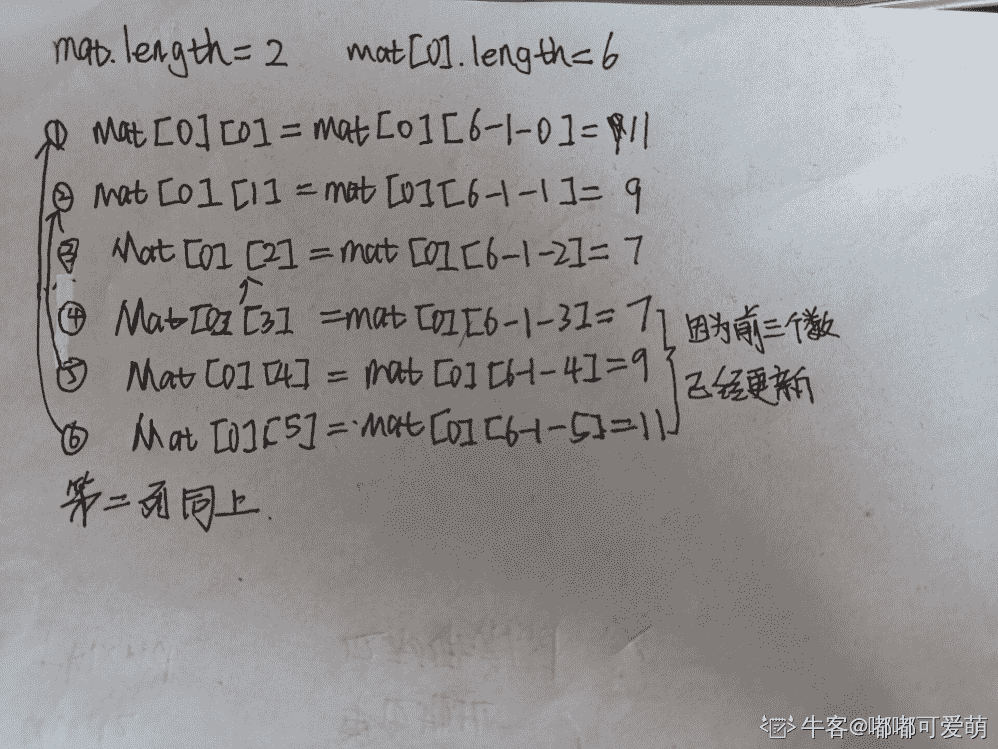 mat.length=2 mat[0].length=6
① mat[0][0]=mat[0][6-1-0]=11
② mat[0][1]=mat[0][6-1-1]=9
③ Mat[0][2]=mat[0][6-1-2]=7
④ Mat[0][3]=mat[0][6-1-3]=7
因为前三个数
⑤ Mat[0][4]=mat[0][6-1-4]=9
已经更新
⑥ Mat[0][5]=mat[0][6-1-5]=11
第二列同上.
牛客@嘟嘟可爱萌